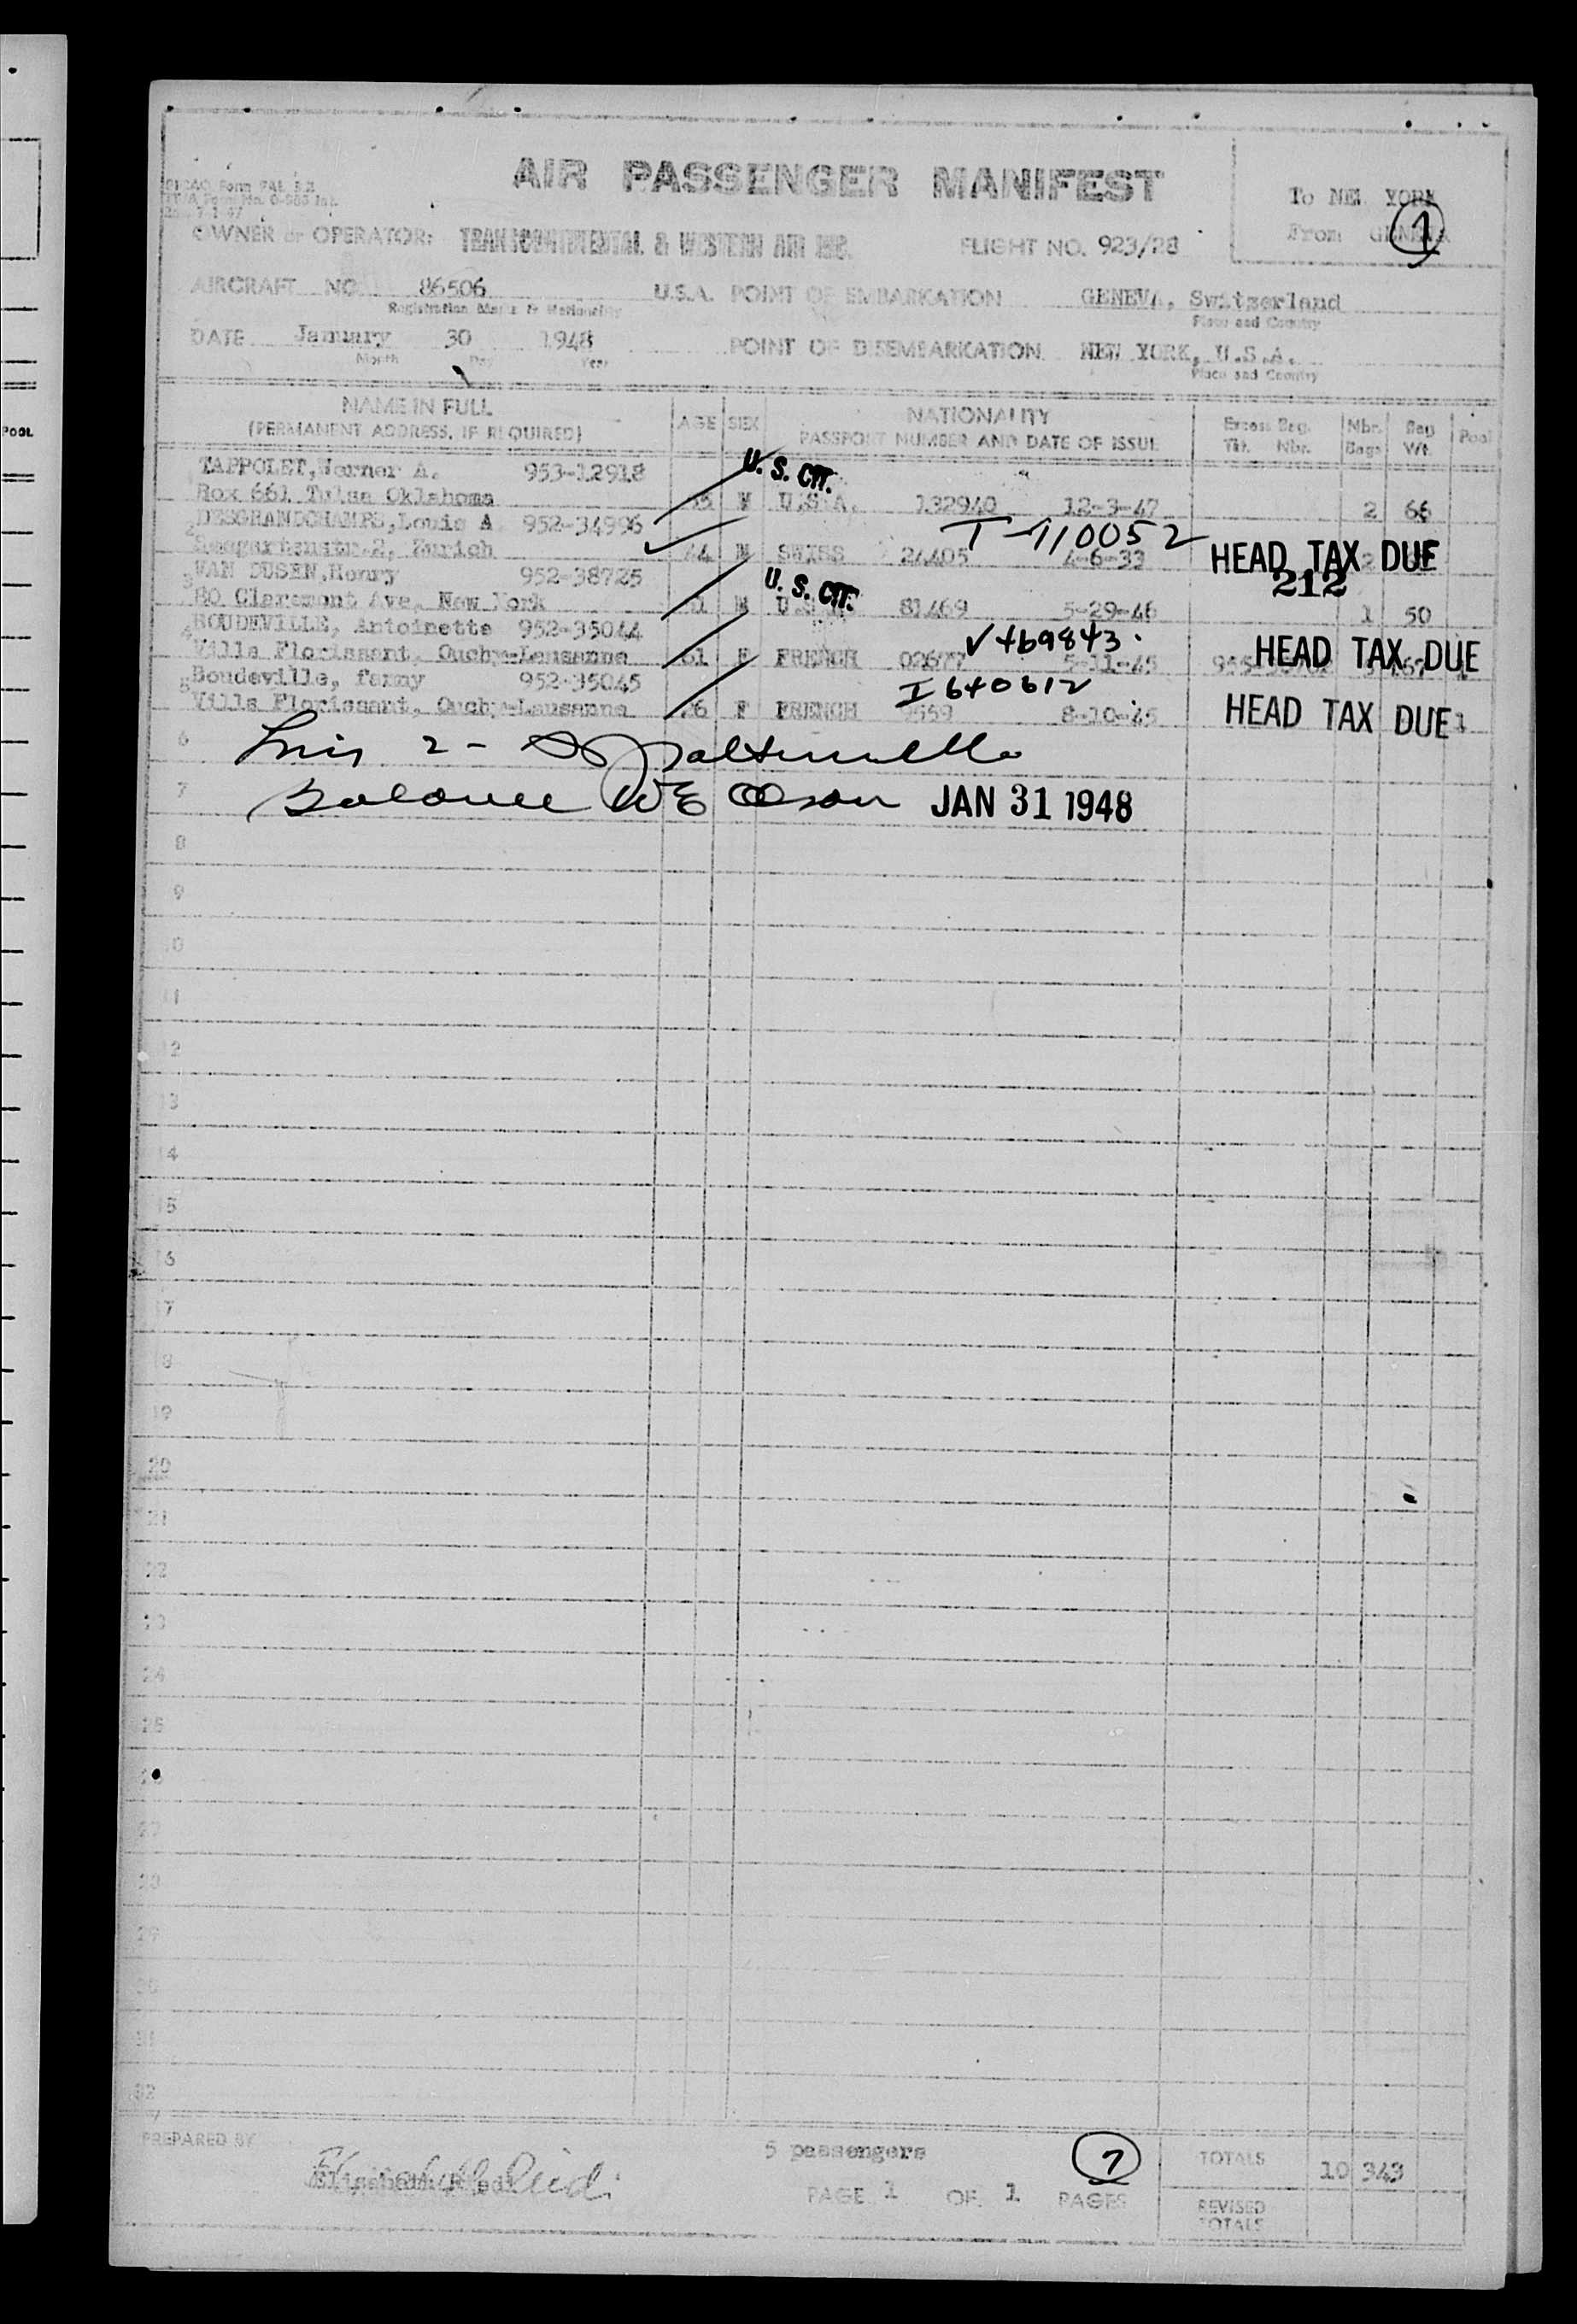 AIR PASSENGER MANIFEST
To NEW YORK
From GENEVA
1
OWNER or OPERATOR: TRANSCONTINENTAL & WESTERN AIR INC. FLIGHT NO. 923/28
AIRCRAFT NO. 86506 U.S.A. POINT OF EMBARKATION GENEVA, Switzerland
Registration Marks & Nationality Place and Country
DATE January 30 1948 POINT OF DISEMBARKATION NEW YORK, U.S.A.
Month Day Year Place and Country
NAME IN FULL AGE SEX NATIONALITY Excess Bag. Nbr. Bag Pool
(PERMANENT ADDRESS, IF REQUIRED) PASSPORT NUMBER AND DATE OF ISSUE Tkt. Nbr. Bags Wt.
TAPPOLET, Werner A. 953-12918 U. S. CIT.
Box 661 Tulsa Oklahoma M U.S.A. 132940 12-3-47 2 66
2 DESGRANDCHAMPS, Louis A 952-34996 T-110052
Zurich 44 M SWISS 24405 4-6-33 2 HEAD TAX DUE
212
3 VAN DUSEN, Henry 952-38725 U. S. CIT.
80 Claremont Ave, New York M 81469 5-29-46 1 50
4 BOUDEVILLE, Antoinette 952-35044 V469843
Villa Florissant, Ouchy-Lausanne 61 F FRENCH 02677 5-11-45 HEAD TAX DUE
5 Boudeville, fanny 952-35045 I640612
Villa Florissant, Ouchy-Lausanne F FRENCH 8-10-45 HEAD TAX DUE 1
6 2 -
7 Balance WE Olson JAN 31 1948
8
9
10
11
12
13
14
15
16
17
18
19
20
21
22
23
24
25
26
27
28
29
30
31
32
PREPARED BY 5 passengers 7 TOTALS 10 343
PAGE 1 OF 1 PAGES REVISED
TOTALS
POOL